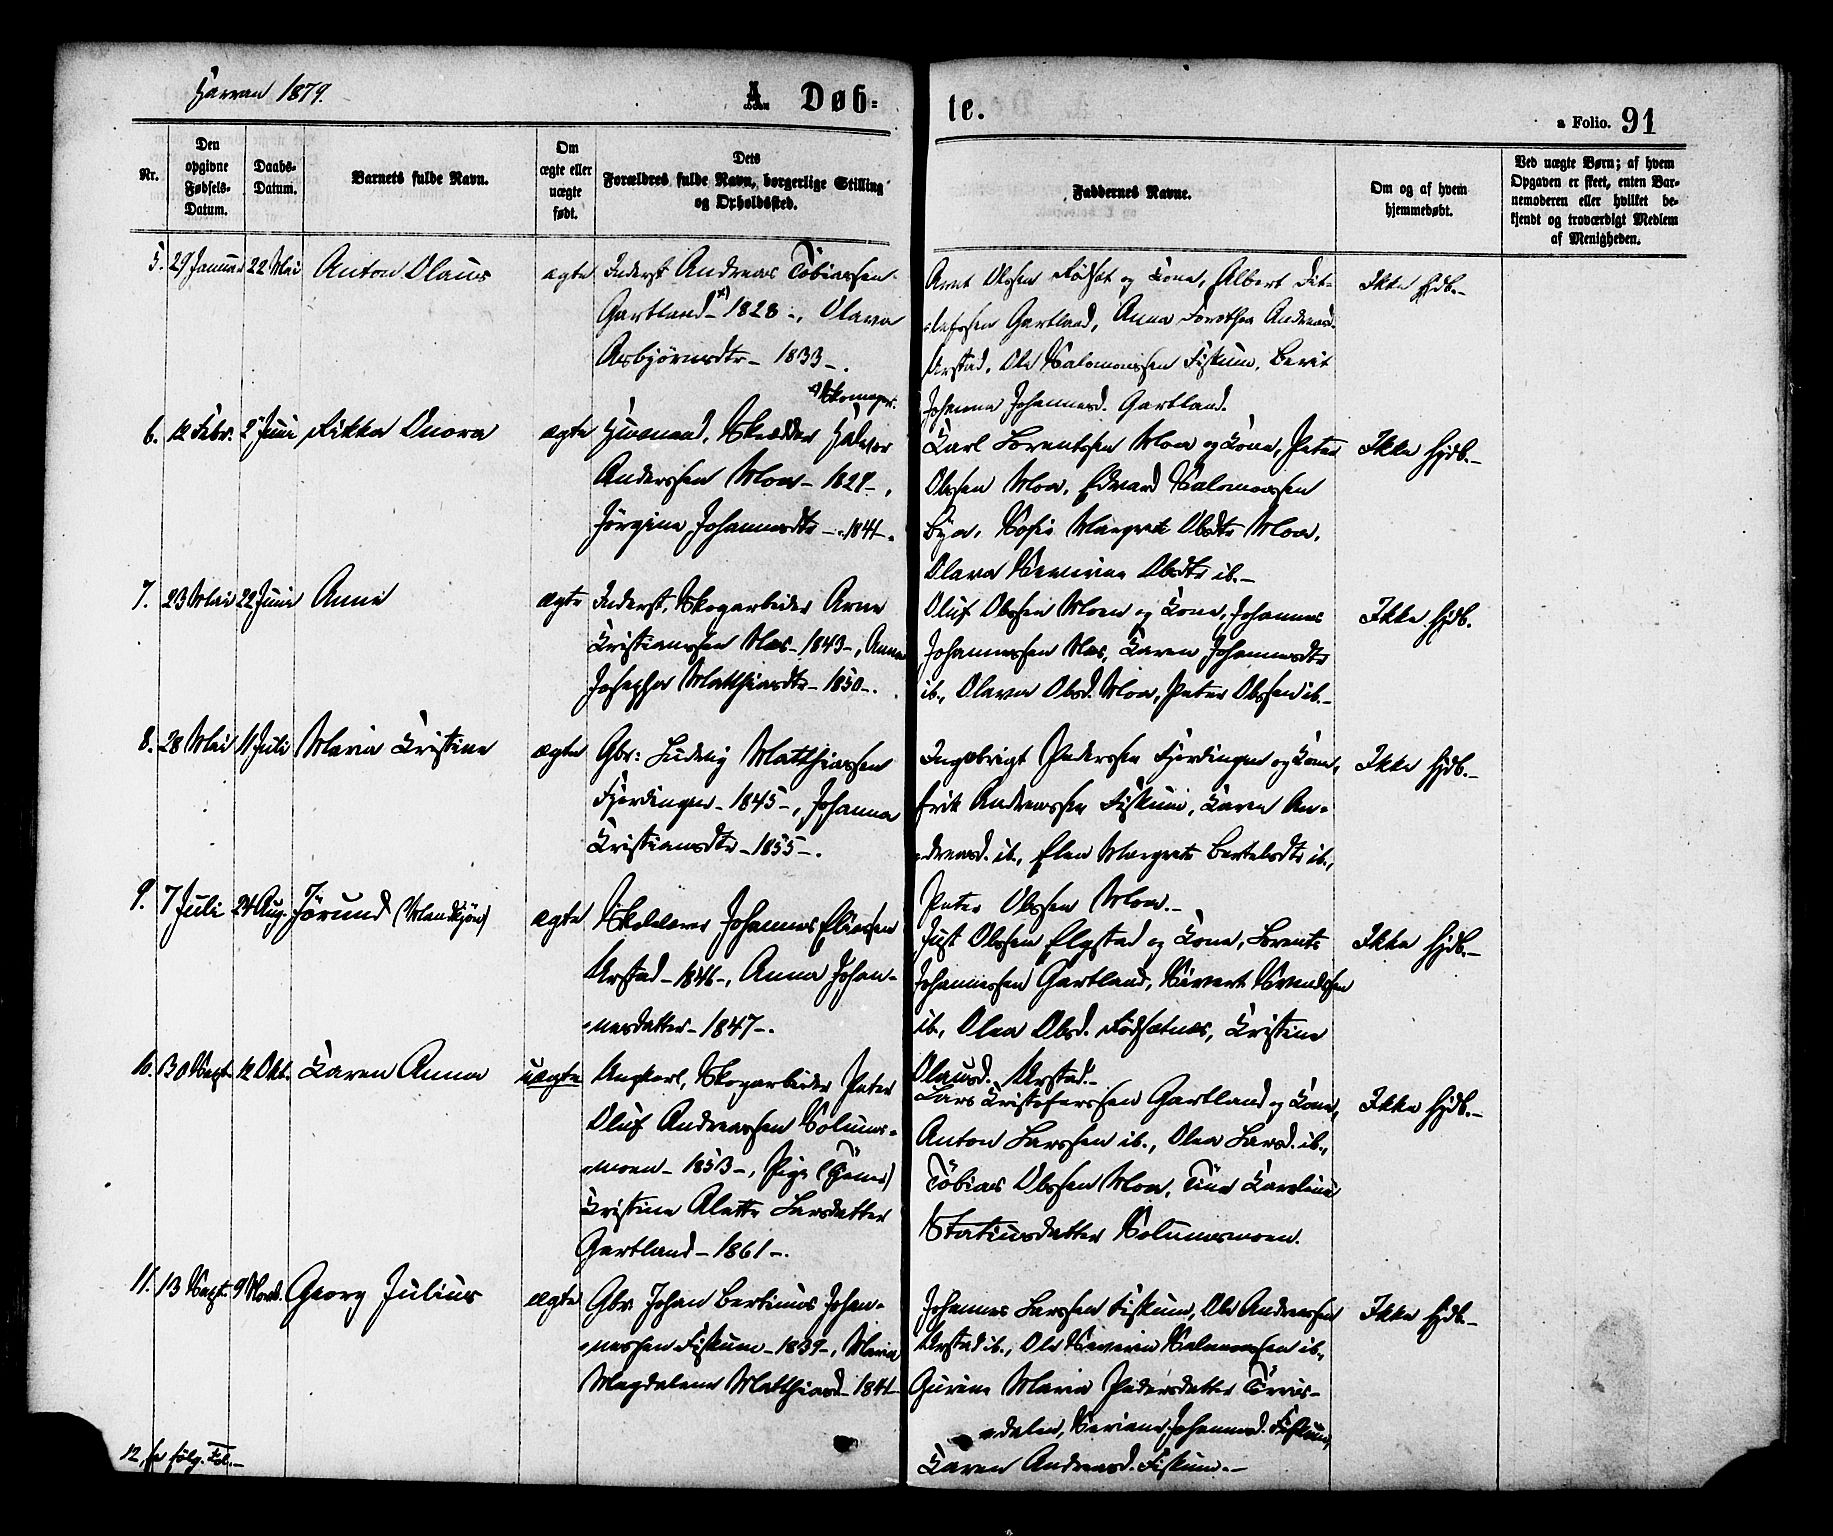 Harran 1879.
A. Døb-
te.
a Folio. 91
Nr.
Den
opgivne
Fødsels-
Datum.
Daabs-
Datum.
Barnets fulde Navn.
Om
ægte eller
uægte
født.
Dets
Forældres fulde Navn, borgerlige Stilling
og Opholdssted.
Faddernes Navne.
Om og af hvem
hjemmedøbt.
Ved uægte Børn; af hvem
Opgaven er skeet, enten Bar-
nemoderen eller hvilket be-
kjendt og troværdigt Medlem
af Menigheden.
5. 29 Januar 22 Mai Anton Olaus ægte Inderst Andreas Tobiassen
Gartland x) 1828 -, Olava
Asbjørnsdtr - 1833 -.
x) Skomager.
Arnt Olssen Rødset og Kone, Albert Det-
lefssen Gartland, Anna Dorothea Andreasd.
Urstad, Ole Salomonssen Fiskum, Berit
Johanna Johannesd. Gartland.
Ikke hjdb.-
6. 12 Febr. 2 Juni Rikka Dnora ægte Husmand, Skrædder Halvor
Anderssen Moa - 1829 -,
Jørgine Johannesdtr - 1841 -.
Karl Lorentssen Moa og Kone, Peter
Olssen Moa, Edvard Salomonssen
Bya, Sofie Margret Olsdtr Moa,
Olava Severine Olsdtr ib.-
Ikke hjdb.-
7. 23 Mai 22 Juni Anne ægte Inderst, Skogarbeider Arne
Kristianssen Nes - 1843 -, Anna
Josepha Matthiasdtr - 1850 -.
Oluf Olssen Moen og Kone, Johannes
Johannessen Nes, Karen Johannesdtr
ib., Olava Olsd. Moa, Peter Olssen ib.-
Ikke hjdb.
8. 28 Mai 11 Juli Maria Kristine ægte Gbr: Ludvig Matthiassen
Fjerdingen - 1845 -, Johanna
Kristiansdtr - 1855 -.
Ingebrigt Pederssen Fjerdingen og Kone,
Erik Andreassen Fiskum, Karen An-
dreasd. ib., Elen Margrete Bertelsdtr ib.,
Peter Olssen Moa.-
Ikke hjdb.-
9. 7 Juli 24 Aug. Jørund (Mandkjøn) ægte Skolelærer Johannes Eliassen
Urstad - 1846 -, Anna Johan-
nesdatter - 1847 -.
Just Olssen Elgstad og Kone, Lorents
Johannessen Gartland, Sivert Svendssen
ib., Olea Olsd. Rødsætnes, Kristine
Olausd. Urstad.-
Ikke hjdb.-
10. 30 Sept. 12 Okt. Karen Anna uægte Ungkarl, Skogarbeider Peter
Oluf Andreassen Solums-
moen - 1853 -, Pige (Tjenes)
Kristine Alette Larsdatter
Gartland - 1861 -.
Lars Kristoferssen Gartland og Kone,
Anton Larssen ib., Olea Larsd. ib.,
Tobias Olssen Moa, Tina Karoline
Statiusdatter Solumsmoen.
Ikke hjdb.-
11. 13 Sept. 9 Novb. Georg Julius ægte Gbr Johan Bertinus Johan-
nessen Fiskum - 1839 -, Maria
Magdalena Matthiasd - 1841 -
Johannes Larssen Fiskum, Ole Andreassen
Urstad ib., Ole Severin Salomonssen ib.,
Gurine Maria Pedersdatter
dalen, Seriane Johannesd. Fiskum,
Karen Andreasd. Fiskum.-
Ikke hjdb.-
12, se følg. Fol.-